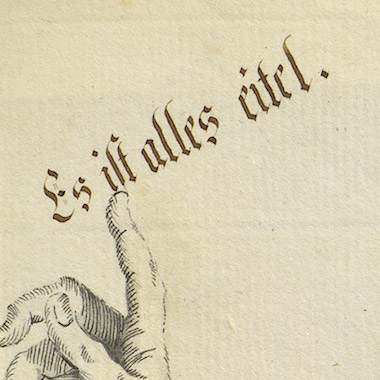 Es ist alles eitel.